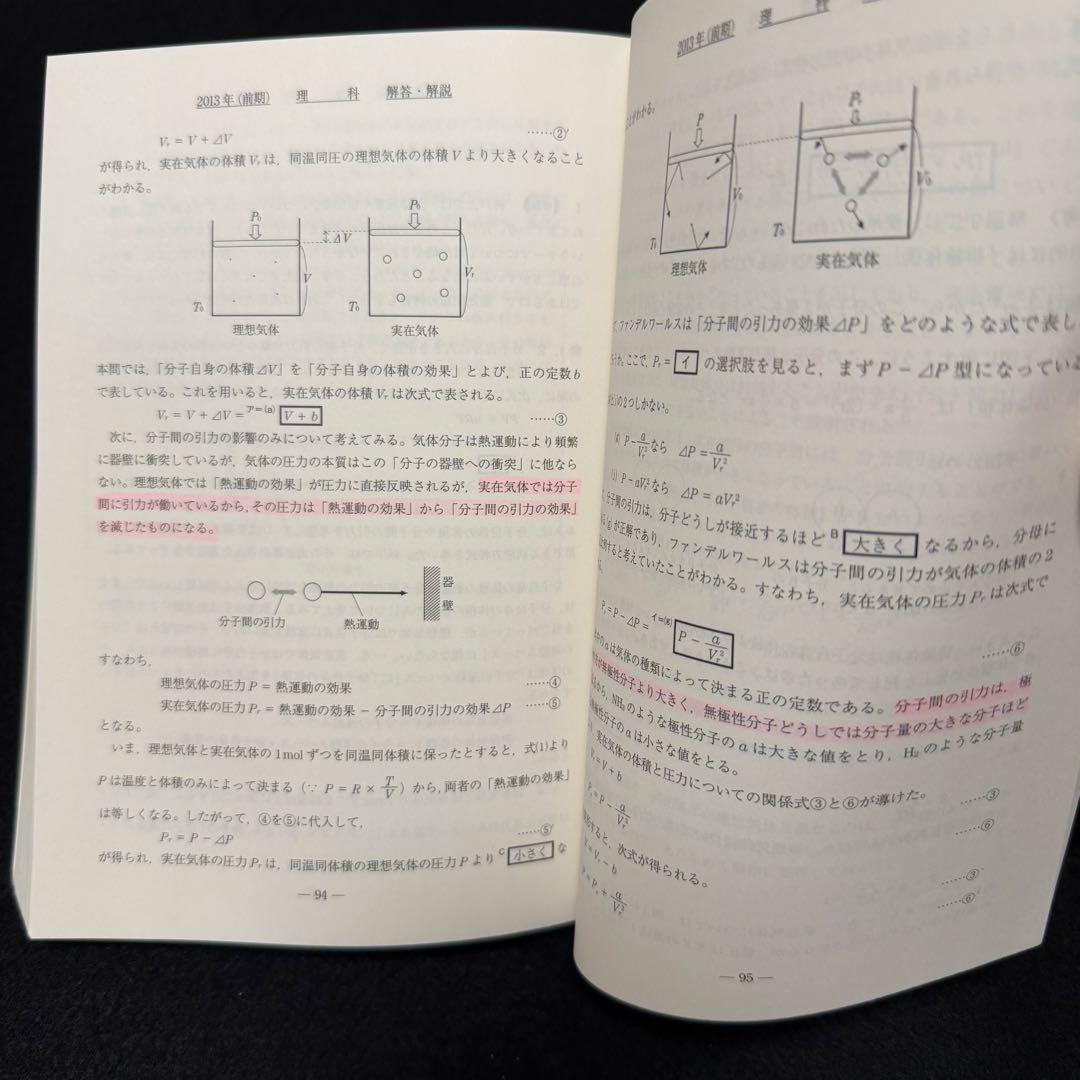 2013年(前期) 理 科 解答・解説
Vr = V + ΔV ……②′
が得られ，実在気体の体積 Vr は，同温同圧の理想気体の体積 V より大きくなること
がわかる。
P0 P0
ΔV
V Vr
T0 T0
理想気体 実在気体
本問では，「分子自身の体積ΔV」を「分子自身の体積の効果」とよび，正の定数 b
で表している。これを用いると，実在気体の体積 Vr は次式で表される。
Vr = V + ΔV = ア=(a) V + b ……③
次に，分子間の引力の影響のみについて考えてみる。気体分子は熱運動により頻繁
に器壁に衝突しているが，気体の圧力の本質はこの「分子の器壁への衝突」に他なら
ない。理想気体では「熱運動の効果」が圧力に直接反映されるが，実在気体では分子
間に引力が働いているから，その圧力は「熱運動の効果」から「分子間の引力の効果」
を減じたものになる。
器
壁
分子間の引力 熱運動
すなわち，
理想気体の圧力 P = 熱運動の効果 ……④
実在気体の圧力 Pr = 熱運動の効果 − 分子間の引力の効果ΔP ……⑤
となる。
いま，理想気体と実在気体の1molずつを同温同体積に保ったとすると，式(1)より
P は温度と体積のみによって決まる (∵ P = R × T/V) から，両者の「熱運動の効果」
は等しくなる。したがって，④を⑤に代入して，
Pr = P − ΔP ……⑤′
が得られ，実在気体の圧力 Pr は，同温同体積の理想気体の圧力 P より C 小さく な
― 94 ―
2013年(前期) 理 科
がわかる。
P Pr
V0 V0
T0 T0
理想気体 実在気体
ファンデルワールスは「分子間の引力の効果ΔP」をどのような式で表し
ここで，Pr = イ の選択肢を見ると，まず P − ΔP 型になっている
の2つしかない。
(g) P − a/Vr² なら ΔP = a/Vr²
(i) P − aVr² なら ΔP = aVr²
分子間の引力は，分子どうしが接近するほど B 大きく なるから，分母に
(g)が正解であり，ファンデルワールスは分子間の引力が気体の体積の2
比例すると考えていたことがわかる。すなわち，実在気体の圧力 Pr は次式で
Pr = P − ΔP = イ=(g) P − a/Vr² ……⑥
の a は気体の種類によって決まる正の定数である。分子間の引力は，極
が無極性分子より大きく，無極性分子どうしでは分子量の大きな分子ほど
から，NH3 のような極性分子の a は大きな値をとり，H2 のような分子量
極性分子の a は小さな値をとる。
実在気体の体積と圧力についての関係式③と⑥が導けた。
Vr = V + b ……③
Pr = P − a/Vr² ……⑥
すると，次式が得られる。
V = Vr − b ……③′
P = Pr + a/Vr² ……⑥′
― 95 ―